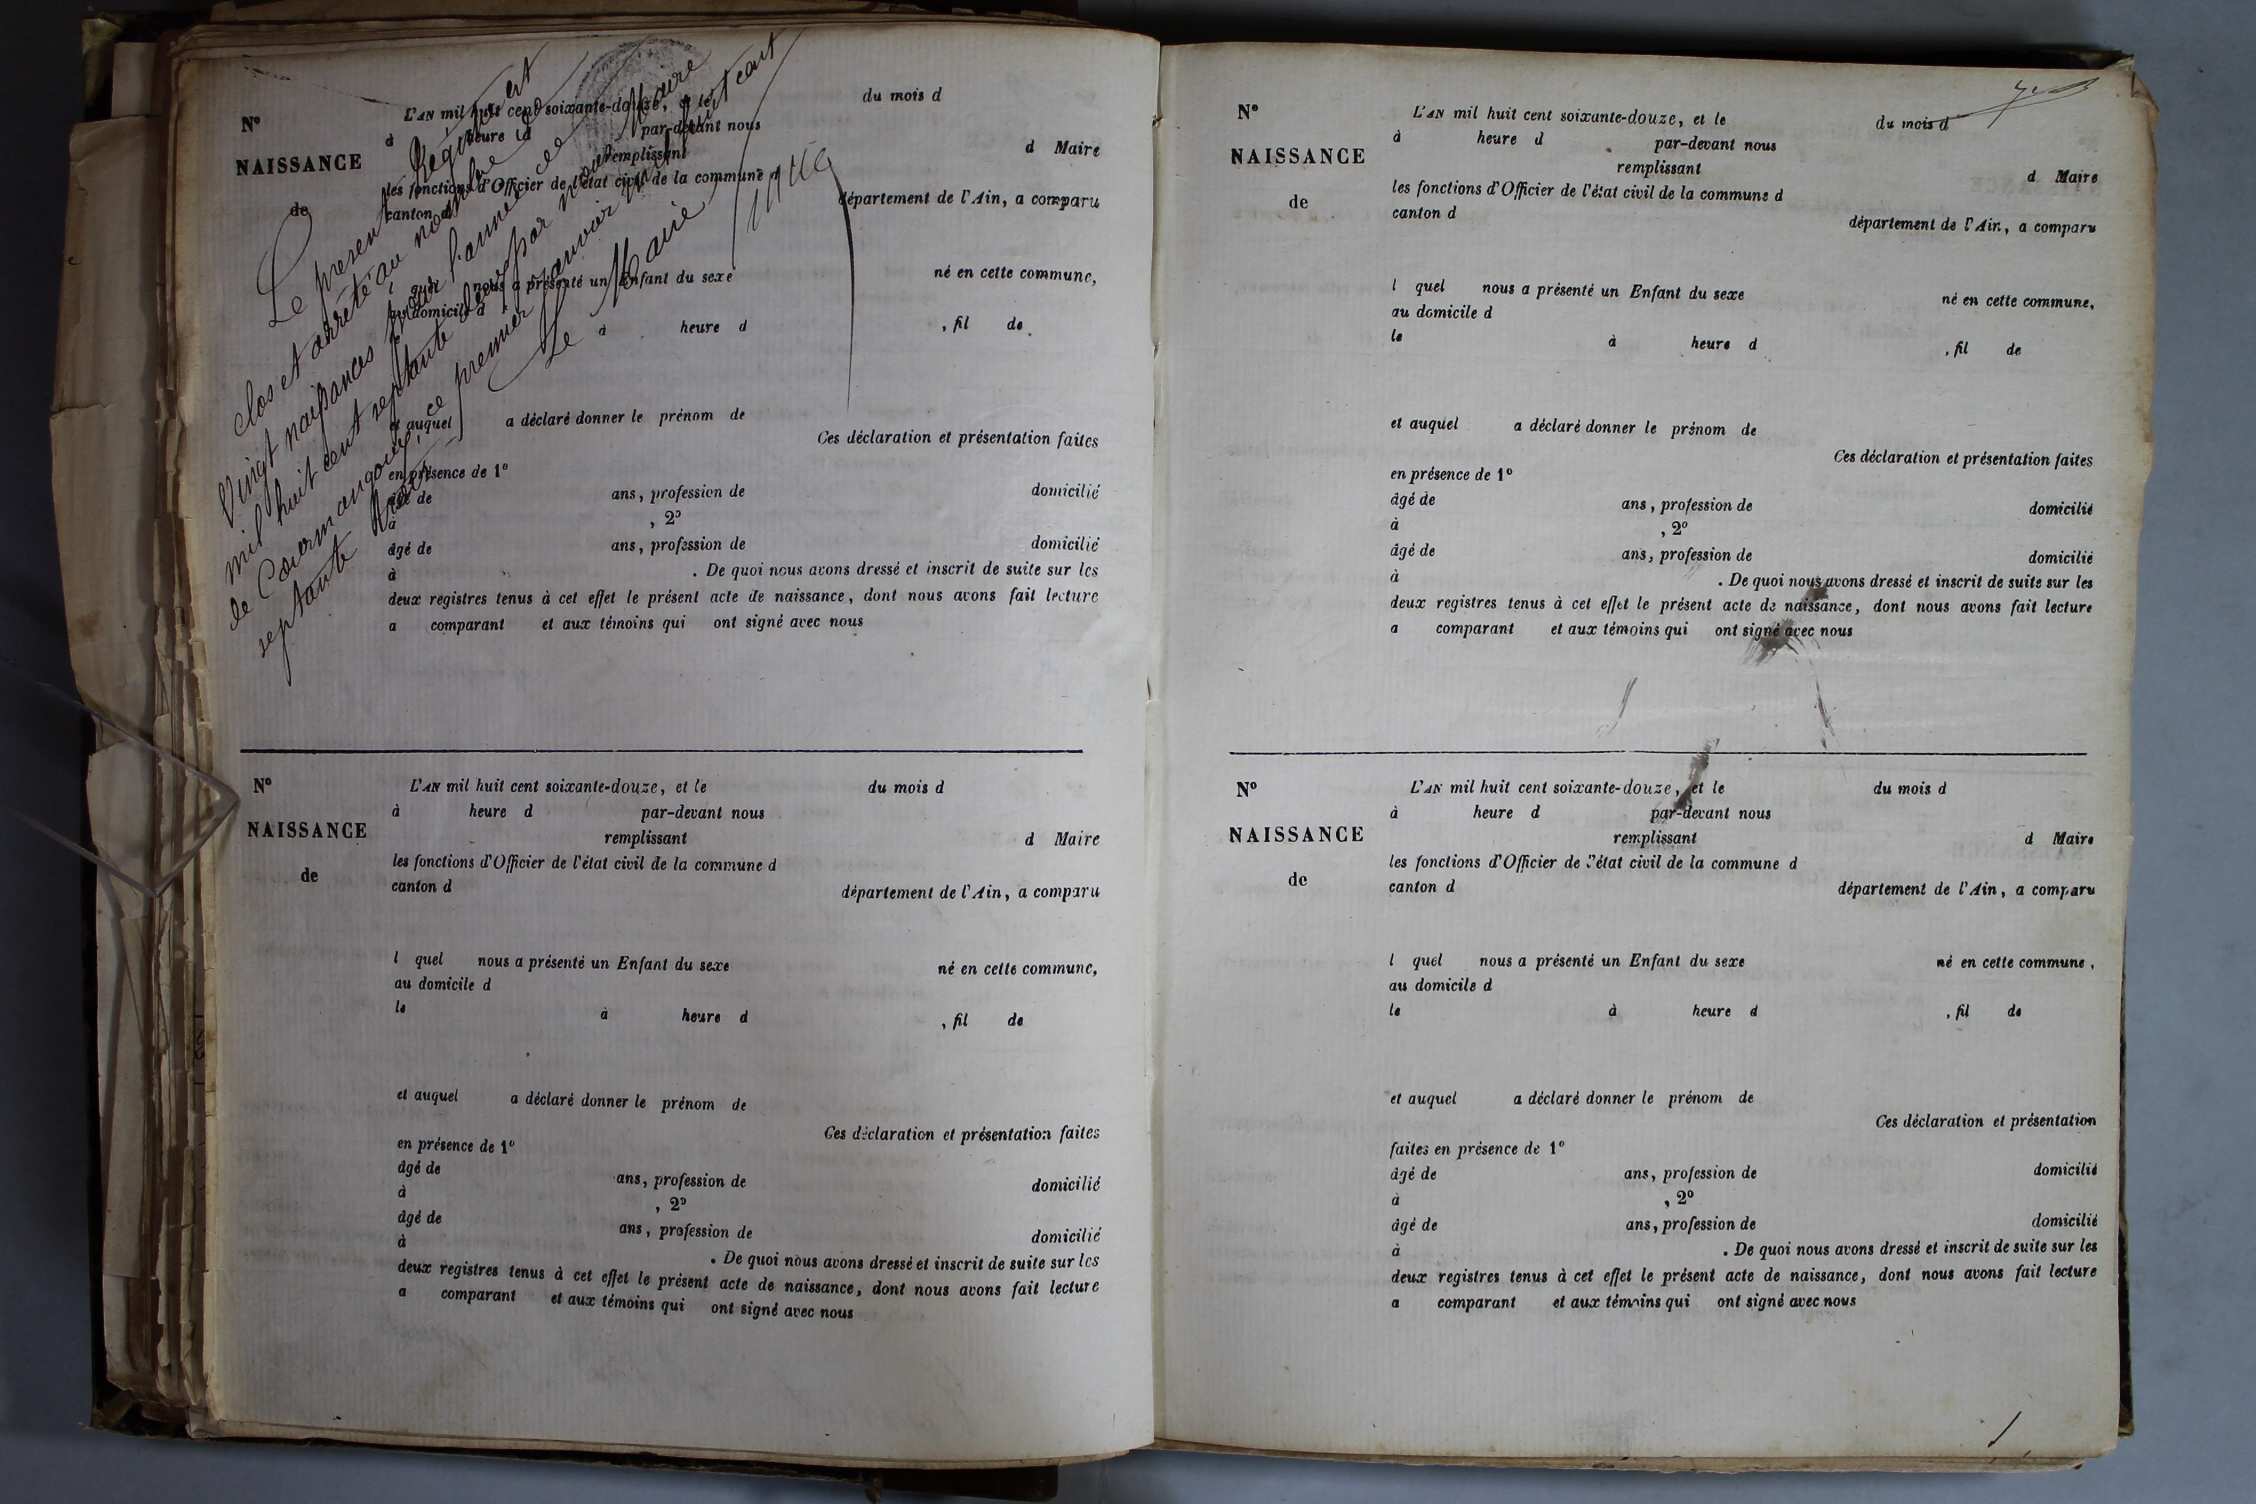 Le present Régistre est
clos et arrêté au nombre de
vingt naissances pour l'année
mil huit cent septante deux par nous Maire
de Courmangoux, ce premier janvier mil huit cent
septante trois
Le Maire
N°
NAISSANCE
de
L'AN mil huit cent soixante-douze, et le du mois d
à heure d par-devant nous
remplissant d Maire
les fonctions d'Officier de l'état civil de la commune d
canton d département de l'Ain, a comparu
l quel nous a présenté un Enfant du sexe né en cette commune,
au domicile d
à heure d , fil de
et auquel a déclaré donner le prénom de
Ces déclaration et présentation faites
en présence de 1°
âgé de ans, profession de domicilié
à , 2°
âgé de ans, profession de domicilié
à . De quoi nous avons dressé et inscrit de suite sur les
deux registres tenus à cet effet le présent acte de naissance, dont nous avons fait lecture
a comparant et aux témoins qui ont signé avec nous
N°
NAISSANCE
de
L'AN mil huit cent soixante-douze, et le du mois d
à heure d par-devant nous
remplissant d Maire
les fonctions d'Officier de l'état civil de la commune d
canton d département de l'Ain, a comparu
l quel nous a présenté un Enfant du sexe né en cette commune,
au domicile d
le à heure d , fil de
et auquel a déclaré donner le prénom de
Ces déclaration et présentation faites
en présence de 1°
âgé de ans, profession de domicilié
à , 2°
âgé de ans, profession de domicilié
à . De quoi nous avons dressé et inscrit de suite sur les
deux registres tenus à cet effet le présent acte de naissance, dont nous avons fait lecture
a comparant et aux témoins qui ont signé avec nous
N°
NAISSANCE
de
L'AN mil huit cent soixante-douze, et le du mois d
à heure d par-devant nous
remplissant d Maire
les fonctions d'Officier de l'état civil de la commune d
canton d département de l'Ain, a comparu
l quel nous a présenté un Enfant du sexe né en cette commune,
au domicile d
le à heure d , fil de
et auquel a déclaré donner le prénom de
Ces déclaration et présentation faites
en présence de 1°
âgé de ans, profession de domicilié
à , 2°
âgé de ans, profession de domicilié
à . De quoi nous avons dressé et inscrit de suite sur les
deux registres tenus à cet effet le présent acte de naissance, dont nous avons fait lecture
a comparant et aux témoins qui ont signé avec nous
N°
NAISSANCE
de
L'AN mil huit cent soixante-douze, et le du mois d
à heure d par-devant nous
remplissant d Maire
les fonctions d'Officier de l'état civil de la commune d
canton d département de l'Ain, a comparu
l quel nous a présenté un Enfant du sexe né en cette commune,
au domicile d
le à heure d , fil de
et auquel a déclaré donner le prénom de
Ces déclaration et présentation
faites en présence de 1°
âgé de ans, profession de domicilié
à , 2°
âgé de ans, profession de domicilié
à . De quoi nous avons dressé et inscrit de suite sur les
deux registres tenus à cet effet le présent acte de naissance, dont nous avons fait lecture
a comparant et aux témoins qui ont signé avec nous